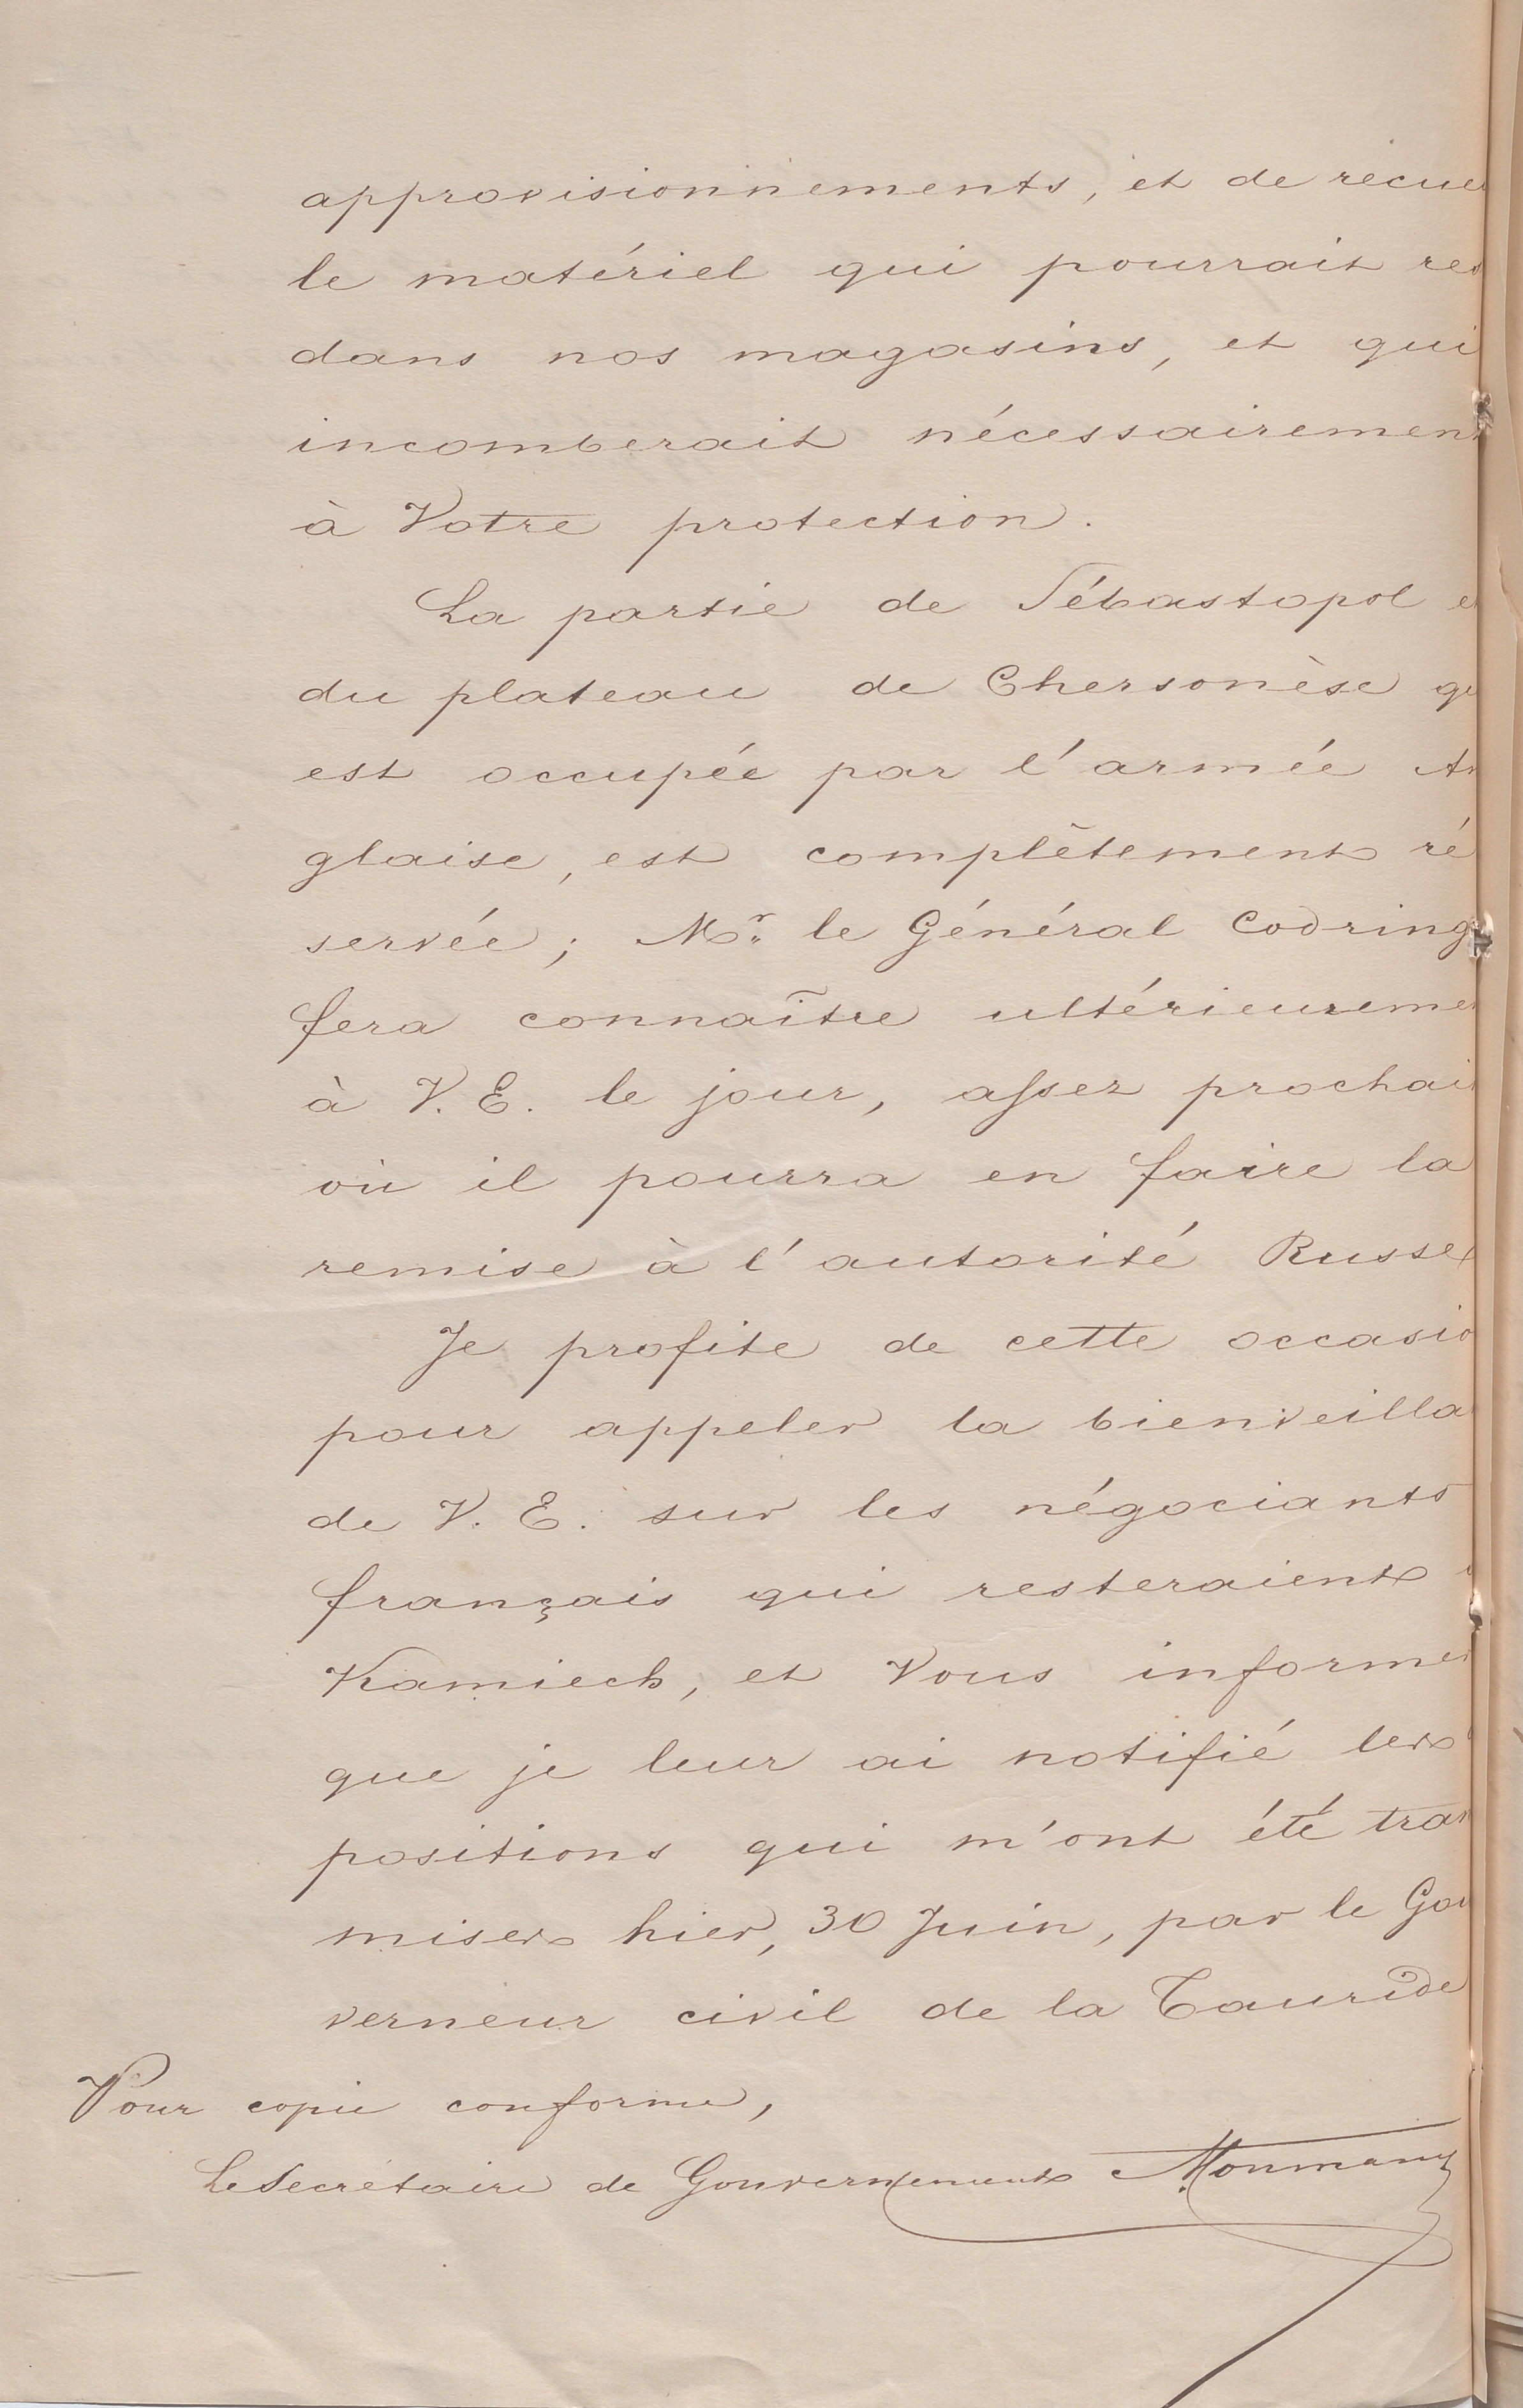 approvisionnements, et de recue
le matériel qui pourrait res
dans nos magasins, et qui
incomberait nécessairement
à Votre protection.
La partie de Sébastopol e
du plateau de Chersonèse qu
est occupée par l'armée An
glaise, est complètement ré
servée; Mr. le Général Codring
fera connaître ultérieureme
à V. E. le jour, assez prochai
où il pourra en faire la
remise à l'autorité Russe
Je profite de cette occasio
pour appeler la bienveilla
de V. E. sur les négociants
français qui resteraient
Kamiech, et Vous informer
que je leur ai notifié les
positions qui m'ont été tran
mises hier, 30 Juin, par le Gou
verneur civil de la Tauride
Pour copie conforme,
Le Secrétaire de Gouvernement